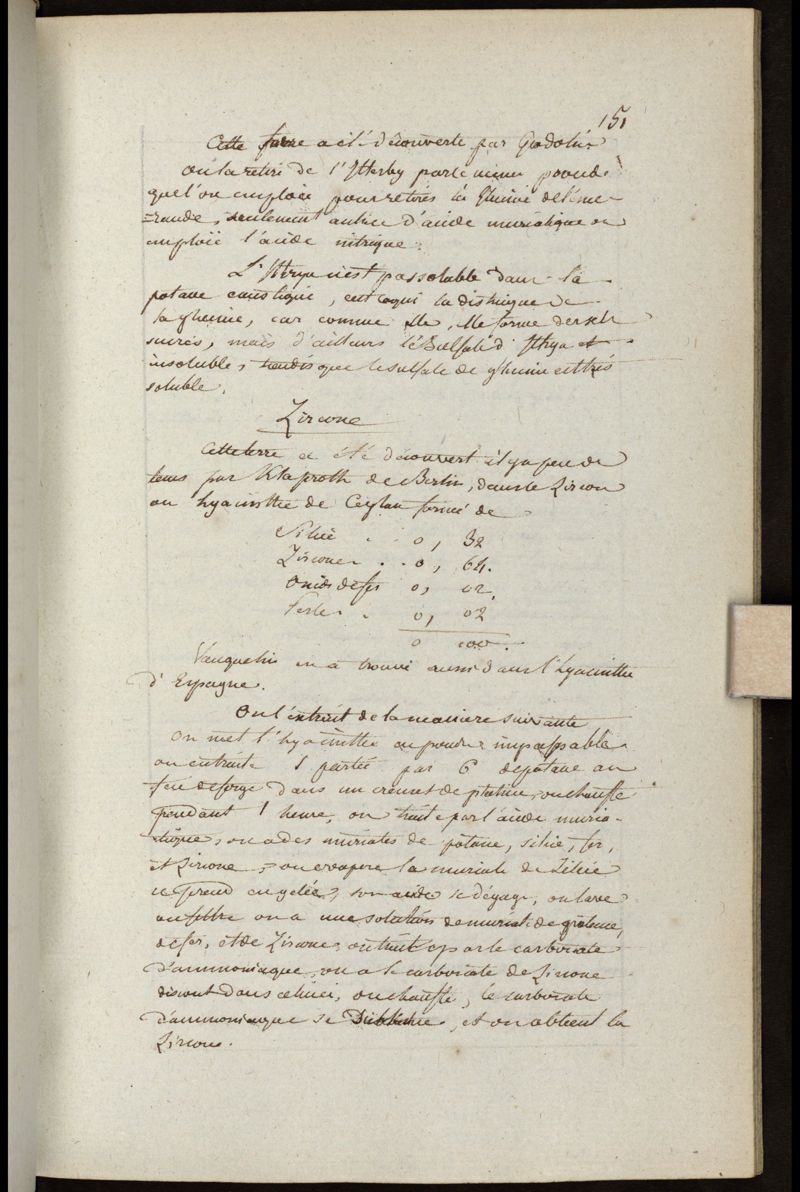 151
Cette terre a été découverte par Gadolin
on la retire de l'Itterby par le même procédé
que l'on emploie pour retirer la Glucine de l'éme-
=raude, seulement au lieu d'acide muriatique on
emploie l'acide nitrique.
L'Ittrya n'est pas soluble dans la
potasse caustique, c'est ce qui la distingue de
la glucine, car comme elle, elle forme des sels
sucrés, mais d'ailleurs le Sulfate d'Ittrya est
insoluble, tandis que le sulfate de glucine est très
soluble.
Zircone
Cette terre a été découvert il y a peu de
tems par Klaproth de Berlin, dans le Zircon
ou hyacinthe de Ceylan formé de
Silice . 0, 32
Zircone . . 0, 64.
Oxide de fer 0, 02.
Perte . 0, 02
0 100.
Vauquelin en a trouvé aussi dans l'hyacinthe
d'Espagne.
On l'extrait de la maniere suivante
On met l'hyacinthe en poudre impalpable
on en traite 1 partie par 6 de potasse au
feu de forge dans un creuset de platine, on chauffe
pendant 1 heure, on traite par l'acide muria-
tique, on a des muriates de potasse, silice, fer,
et Zircone, on évapore le muriate de Silice
se prend en gelée, son acide se dégage, on lave
on filtre on a une solution de muriate de potasse,
de fer, et de Zircone, on traite par le carbonate
d'ammoniaque, on a le carbonate de Zircone
dissout dans celui ci, on chauffe, le carbonate
d'ammoniaque se , et on obtient la
Zircone.